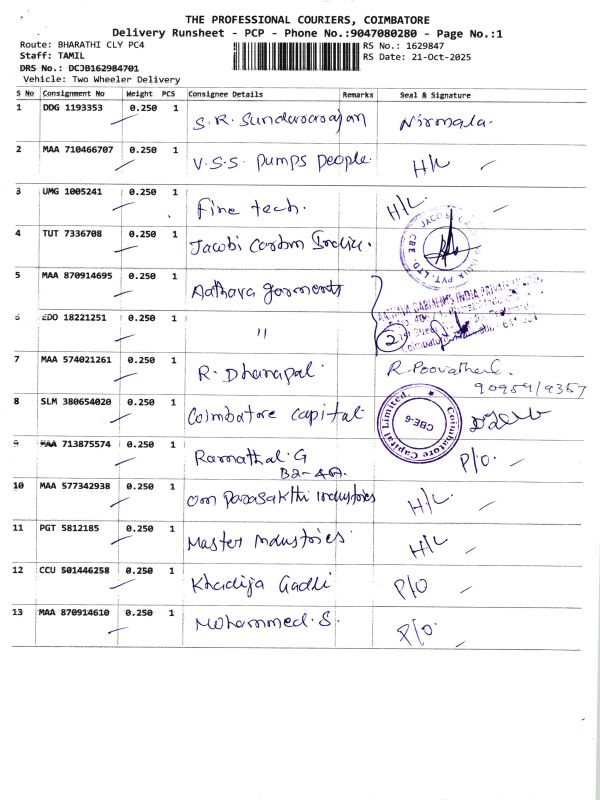 THE PROFESSIONAL COURIERS, COIMBATORE
Delivery Runsheet - PCP - Phone No.:9047080280 - Page No.:1
Route: BHARATHI CLY PC4 RS No.: 1629847
Staff: TAMIL RS Date: 21-Oct-2025
DRS No.: DCJB162984701
Vehicle: Two Wheeler Delivery
S No Consignment No Weight PCS Consignee Details Remarks Seal & Signature
1 DDG 1193353 0.250 1 S.R. Sundararajan Nirmala.
2 MAA 710466707 0.250 1 V.S.S. pumps people. H/L
3 UMG 1005241 0.250 1 Fine tech. H/L.
4 TUT 7336708 0.250 1 Jacobi Carbon India. JACOBI CARBONS INDIA PVT. LTD. CBE
5 MAA 870914695 0.250 1 Aathava garments
6 EDO 18221251 0.250 1 " 2
7 MAA 574021261 0.250 1 R. Dhanapal. R. Poovathal.
90959/9357
8 SLM 380654020 0.250 1 Coimbatore capital. Coimbatore Capital Limited. CBE-6
9 MAA 713875574 0.250 1 Ramathal. G P/O.
B2-4A.
10 MAA 577342938 0.250 1 om parasakthi industries H/L.
11 PGT 5812185 0.250 1 Master industries H/L
12 CCU 501446258 0.250 1 Khadija Gadhi P/O
13 MAA 870914610 0.250 1 Mohammed. S. P/O.